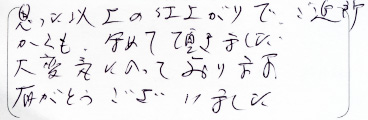 思った以上の仕上がりで、ご近所
からも、ほめて頂きました
大変気に入っております
有がとうございました